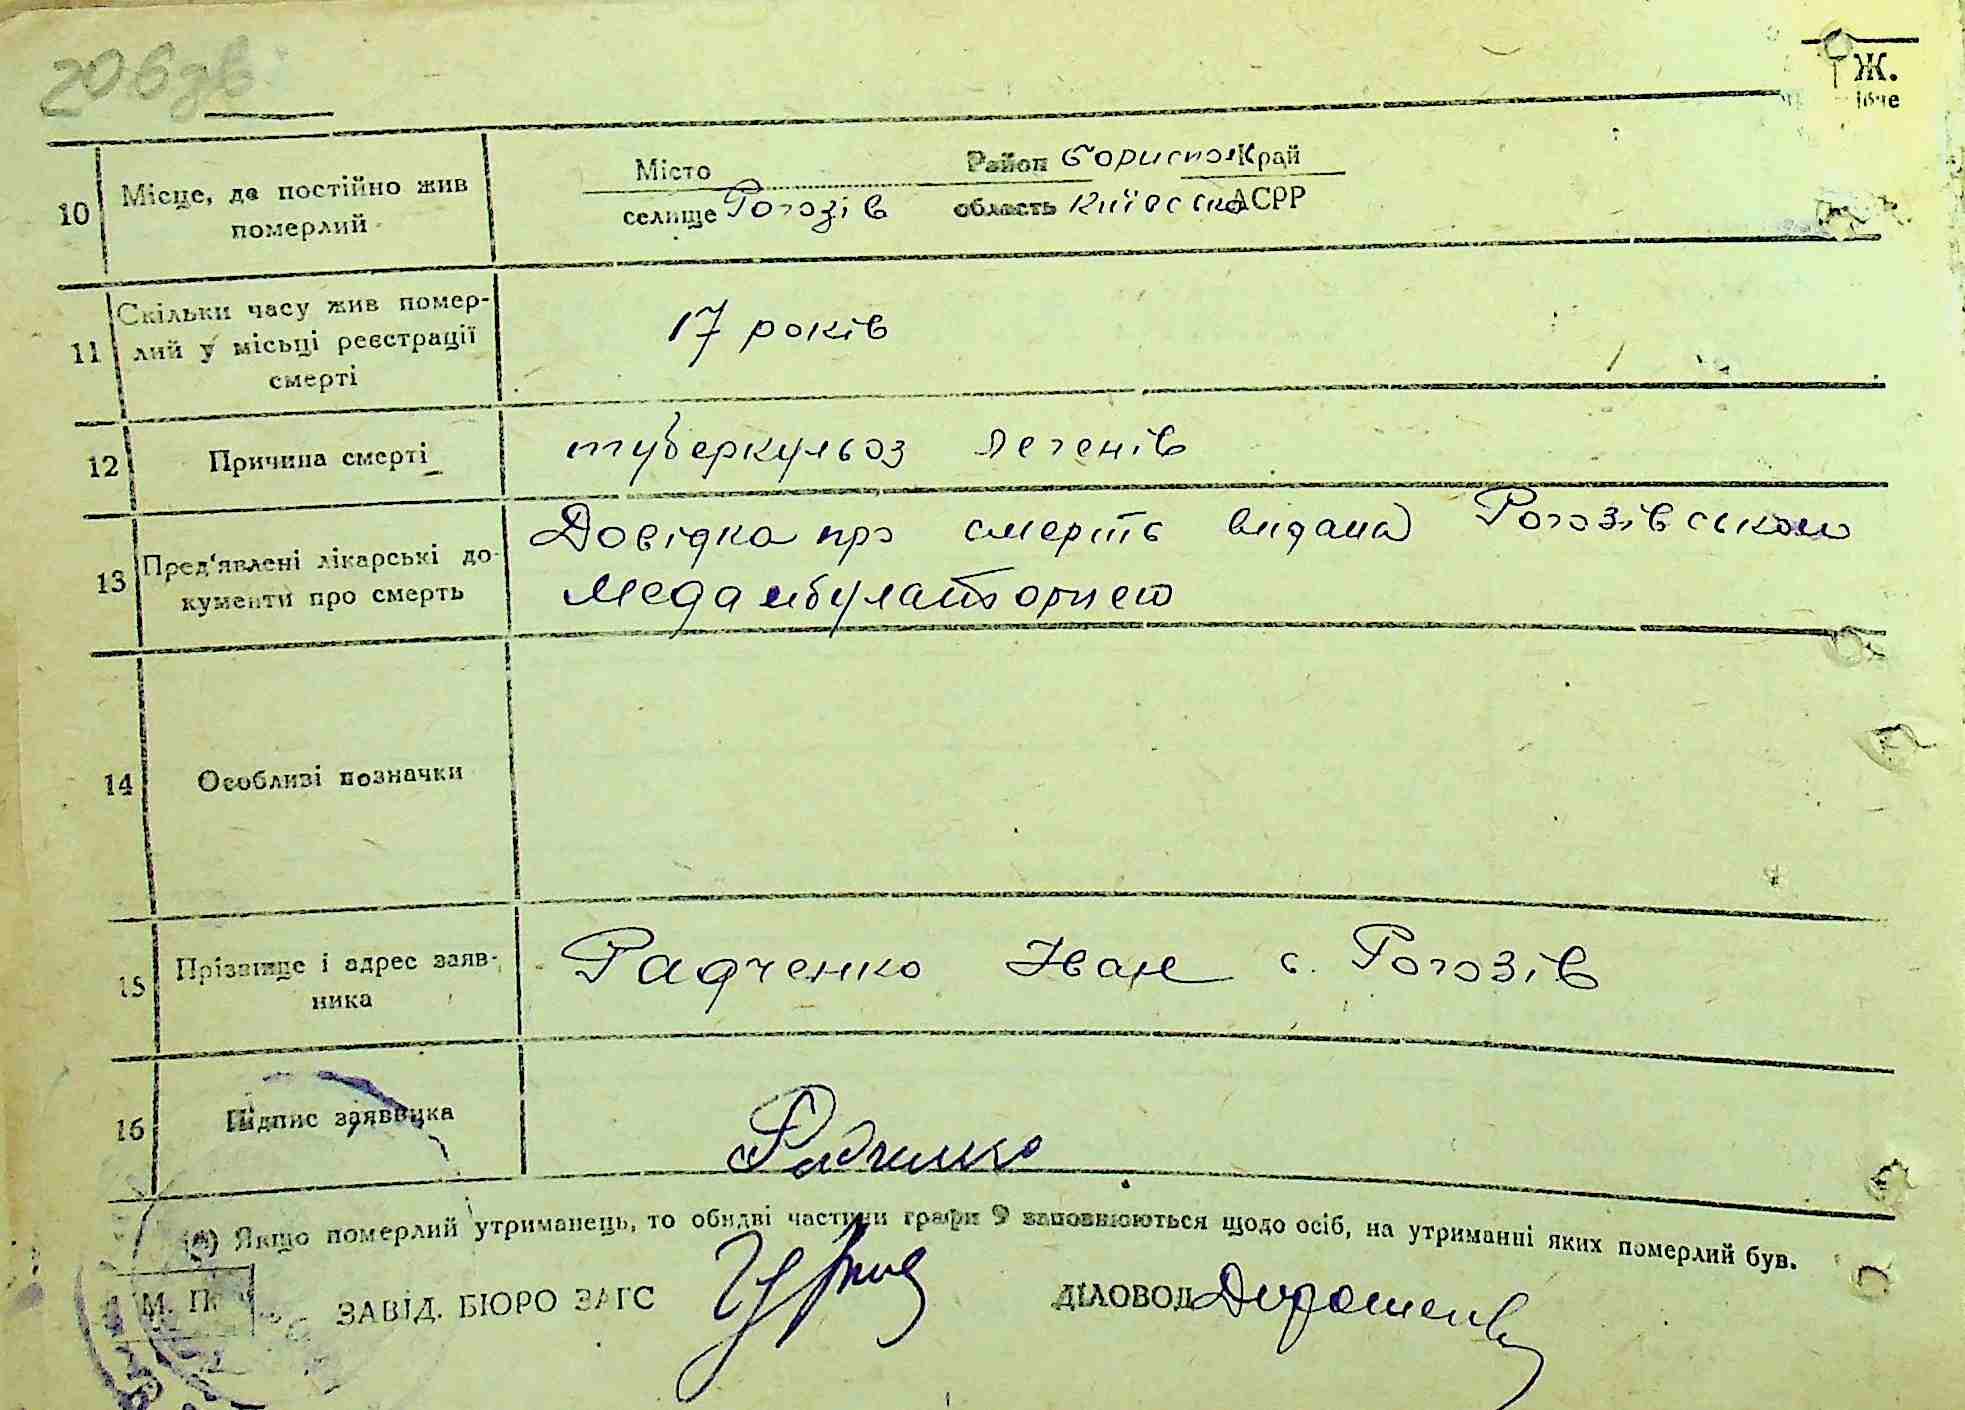 206 зв
Ж.
10 Місце, де постійно жив померлий
Місто Район Борispол Край
селище Рогозів область Київська АСРР
11 Скільки часу жив помер-
лий у місьці реєстрації
смерті
17 років
12 Причина смерті
туберкульоз легенів
13 Пред'явлені лікарські до-
кументи про смерть
Довідка про смерть видана Рогозівською
Медамбулаторією
14 Особливі позначки
15 Прізвище і адрес заяв-
ника
Радченко Іван с. Рогозів
16 Підпис заявника
Радченко
(*) Якщо померлий утриманець, то обидві частини графи 9 заповнюються щодо осіб, на утриманні яких померлий був.
М. П.
ЗАВІД. БЮРО ЗАГС
ДІЛОВОД